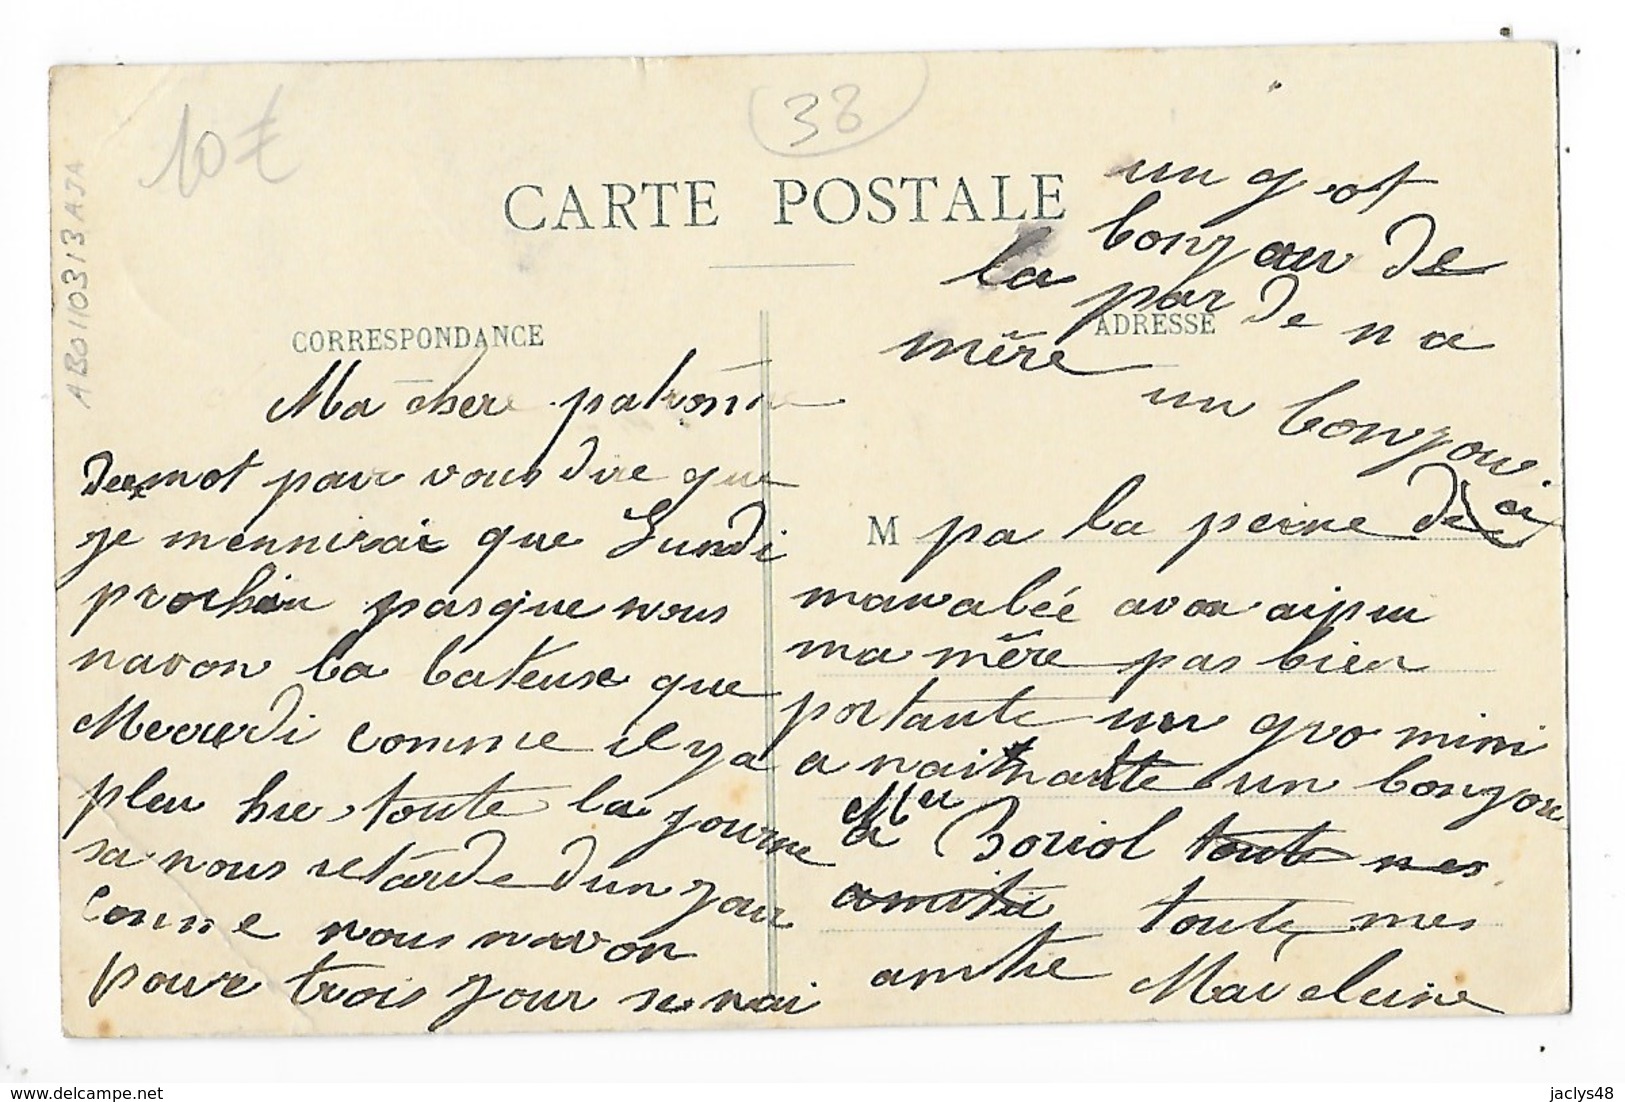 10€
38
AB0110313AJA
CARTE POSTALE
CORRESPONDANCE
ADRESSE
Ma chere patronne
deux mot pour vous dire que
je mennirai que Lundi
prochain pasque nous
navon la bateuse que
Mecredi comme il ya
pleu hie toute la journe
sa nous retarde dun jour
conne nous navon
pour trois jour se nai
M pa la peine de
manalée avon aipui
ma mère pas bien
portante un gro mimi
a nainante un bonjou
a Boriol toute mes
amitie toute mes
amitie Madeleine
un grot
bonjour de
la par de na
mère
un bonjour
jaclys48